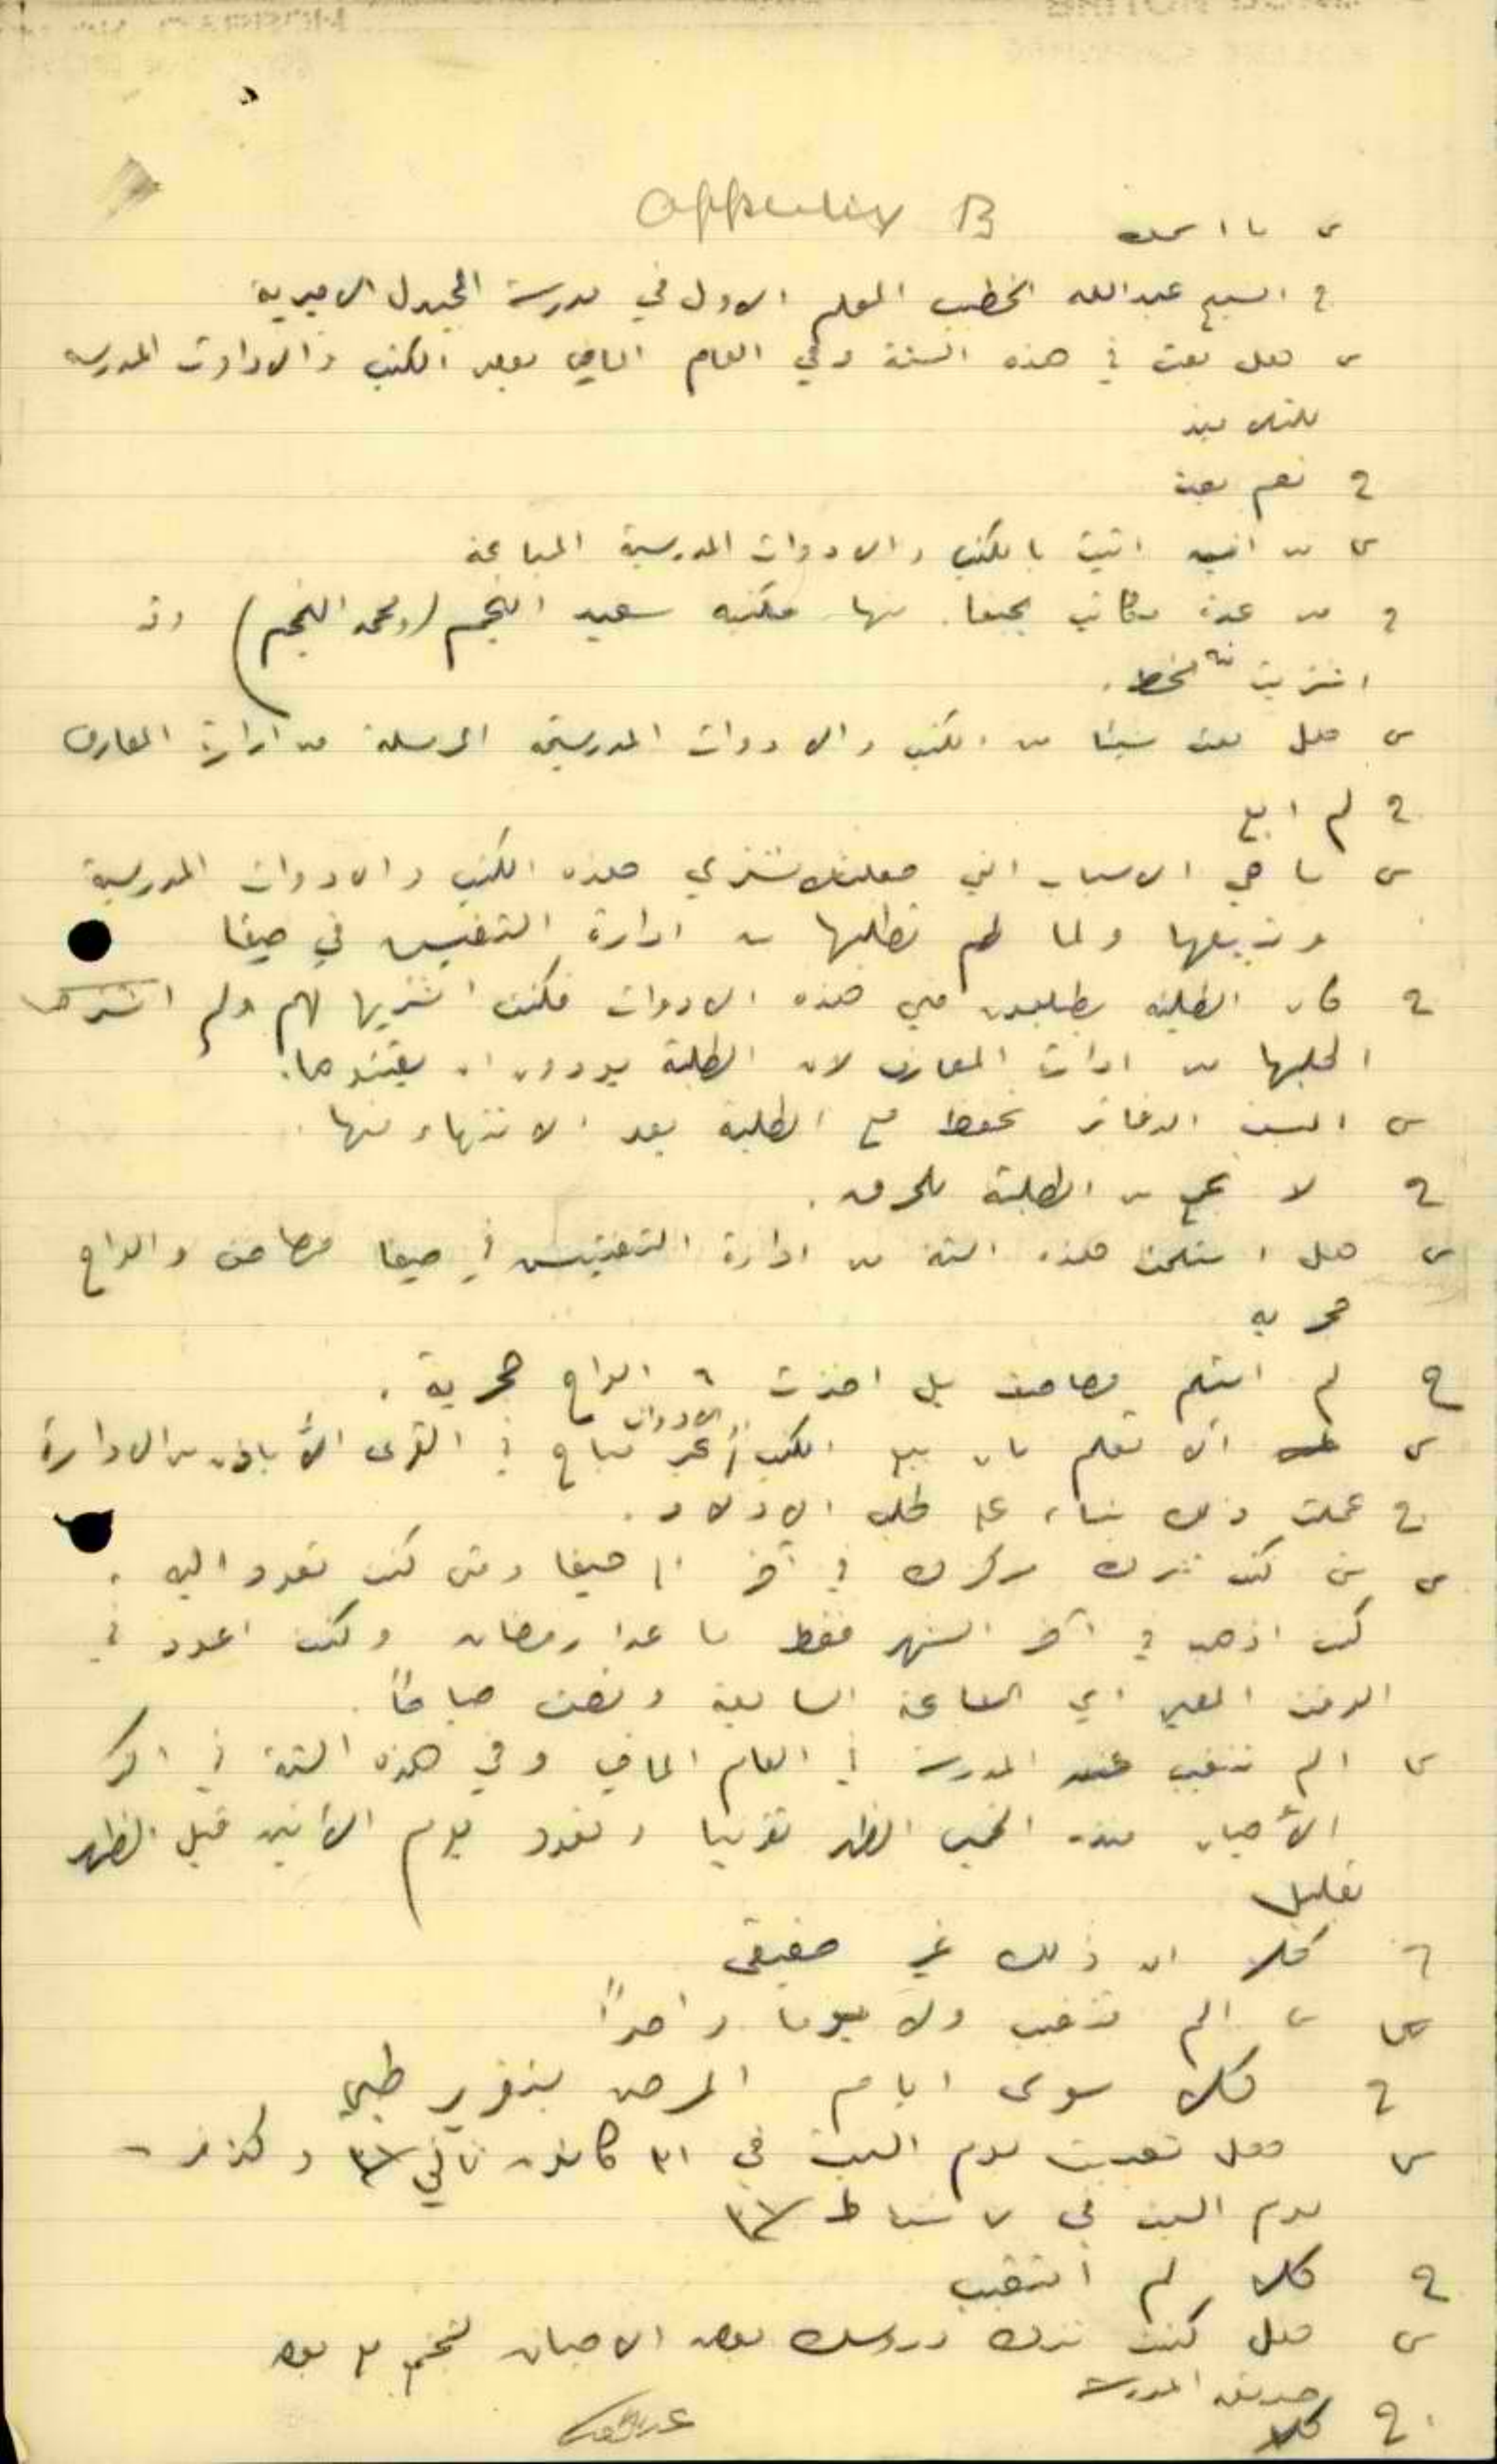 Appendix B
س ما اسمك
ج الشيخ عبدالله الخطيب المعلم الاول في مدرسة المجيدل الاميرية
س هل بعت في هذه السنة وفي العام الماضي بعض الكتب والادوات المدرسيه
للتلاميذ
ج نعم بعت
س من اين اتيت بالكتب والادوات المدرسية المباعة
ج من عدة مكاتب بحيفا منها مكتبه سعيد النجم (ومحمد النجم) وقد
اشتريت
س هل بعت شيئا من الكتب والادوات المدرسيه المرسلة من ادارة المعارف
ج لم ابع
س ما هي الاسباب التي جعلتك تشتري هذه الكتب والادوات المدرسية
وتبيعها ولما لم تطلبها من ادارة التفتيش في حيفا
ج كان الطلبه يطلبون مني هذه الادوات فكنت اشتريها لهم ولم
اطلبها من ادارة المعارف لان الطلبة يودون ان يقتنوها.
س اليست الدفاتر تحفظ مع الطلبة بعد الانتهاء منها.
ج لا تجمع من الطلبة للحرق.
س هل استلمت هذه السنة من ادارة التفتيش في حيفا والواح
حجريه
ج لم استلم بل اخذت ٦ الواح حجرية.
س الا تعلم بان بيع الكتب والادوات غير مباح في القرى الا باذن من الادارة
ج عملت ذلك بناء على طلب الاولاد.
س متى كنت تترك مركزك في آخر الى حيفا ومتى كنت تعود اليه.
كنت اذهب في آخر الشهر فقط ما عدا رمضان وكنت اعود في
الوقت المعين اي الساعة السابعة ونصف صباحاً.
س الم تتغيب عن المدرسة في العام الماضي وفي هذه السنة في اكثر
الأحيان منذ الخميس الظهر تقريبا وتعود يوم الأثنين قبل الظهر
بقليل
ج كلا ان ذلك غير حقيقي
س الم تتغيب ولا يوما واحداً
ج كلا سوى ايام المرض بتقرير طبي
س هل تغيبت يوم السبت في ٣١ كانون ثاني ٣١ وكذلك
يوم السبت في ٧ شباط ٣١
ج كلا لم اتغيب
س هل كنت تترك دروسك بعض الاحيان
حديقة المدرسة
ج كلا